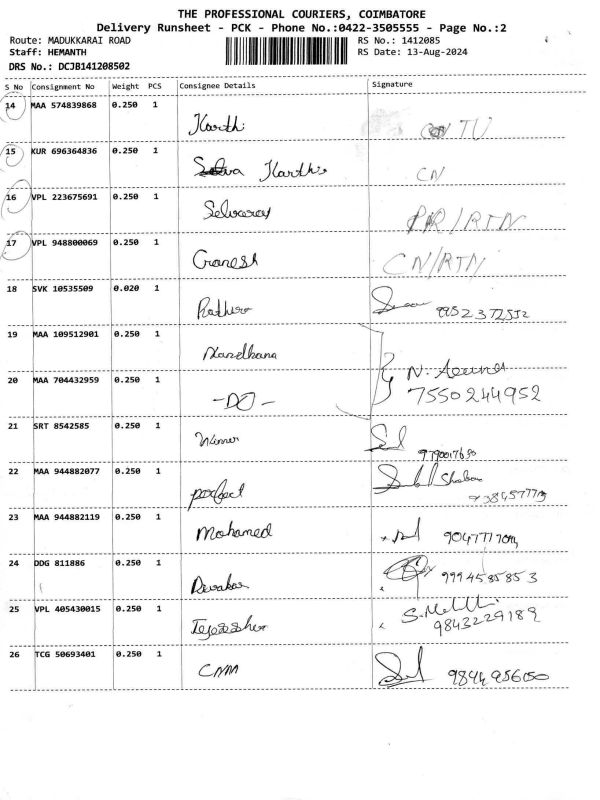 THE PROFESSIONAL COURIERS, COIMBATORE
Delivery Runsheet - PCK - Phone No.:0422-3505555 - Page No.:2
Route: MADUKKARAI ROAD RS No.: 1412085
Staff: HEMANTH RS Date: 13-Aug-2024
DRS No.: DCJB141208502
S No Consignment No Weight PCS Consignee Details Signature
14 MAA 574839868 0.250 1
Karthi CN TV
15 KUR 696364836 0.250 1
Selva Karthi CN
16 VPL 223675691 0.250 1
Selvaraj /RTN
17 VPL 948800069 0.250 1
Ganesh CN/RTN
18 SVK 10535509 0.020 1
99523
19 MAA 109512901 0.250 1
Nandhana
20 MAA 704432959 0.250 1 N.
-DO- 7550244952
21 SRT 8542585 0.250 1
22 MAA 944882077 0.250 1
perfect
23 MAA 944882119 0.250 1
Mohamed
24 DDG 811886 0.250 1
Devakar 9994585853
25 VPL 405430015 0.250 1
9843229189
26 TCG 50693401 0.250 1
9844956150